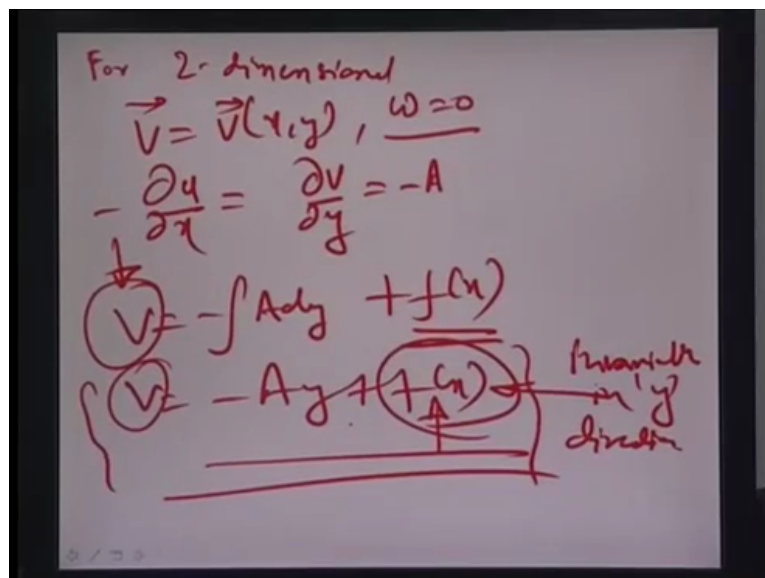 For 2-dimensional
V⃗ = V⃗(x,y), ω=0
- ∂u/∂x = ∂v/∂y = -A
V = -∫Ady + f(x)
V = -Ay + f(x)
in 'y'
direction